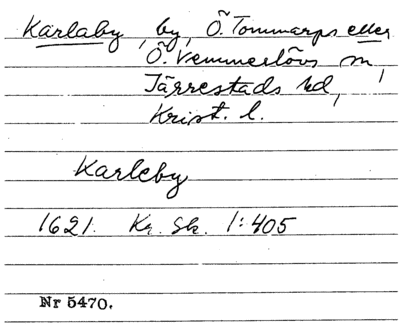 Karlaby, by, Ö. Tommarps eller
Ö. Vemmerlövs sn,
Järrestads hd,
Krist. l.
Karleby
1621. Kr. Sk. 1:405
Nr 5470.